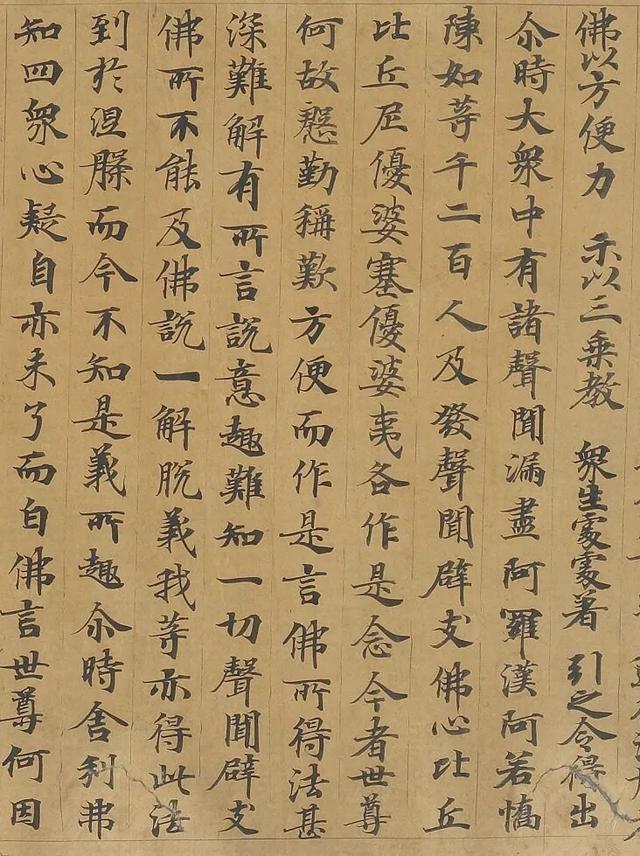 佛以方便力 示以三乘教 衆生處處著 引之令得出
尒時大衆中有諸聲聞漏盡阿羅漢阿若憍
陳如等千二百人及發聲聞辟支佛心比丘
比丘尼優婆塞優婆夷各作是念今者世尊
何故慇勤稱歎方便而作是言佛所得法甚
深難解有所言說意趣難知一切聲聞辟支
佛所不能及佛說一解脫義我等亦得此法
到於涅槃而今不知是義所趣尒時舍利弗
知四衆心疑自亦未了而白佛言世尊何因